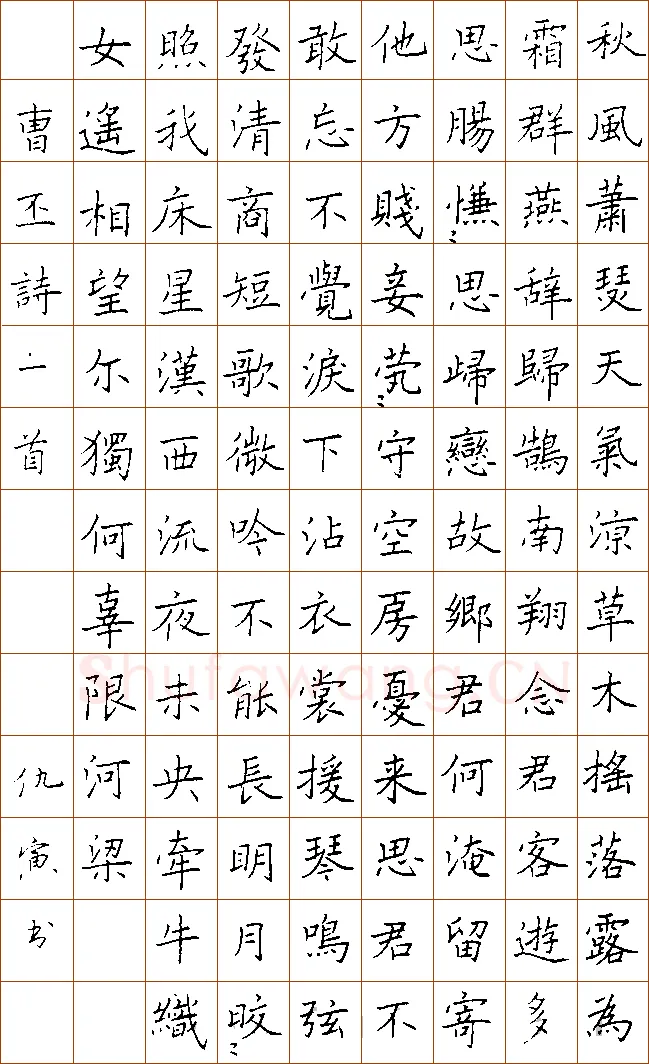 秋風蕭瑟天氣涼草木搖落露為
霜群燕辞歸鵠南翔念君客遊多
思腸慊〻思歸戀故鄉君何淹留寄
他方賤妾茕〻守空房憂来思君不
敢忘不覺淚下沾衣裳援琴鳴弦
發清商短歌微吟不能長明月皎〻
照我床星漢西流夜未央牽牛織
女遙相望尔獨何辜限河梁
曹丕詩一首
仇寅书
Shufawang.CN